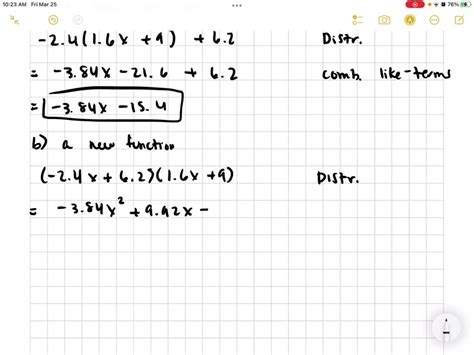 10:23 AM Fri Mar 25
76%
-2.4(1.6x + 9) + 6.2 Distr.
= -3.84x - 21.6 + 6.2 comb. like-terms
= -3.84x - 15.4
b) a new function
(-2.4x + 6.2)(1.6x + 9) Distr.
= -3.84x² + 9.92x -